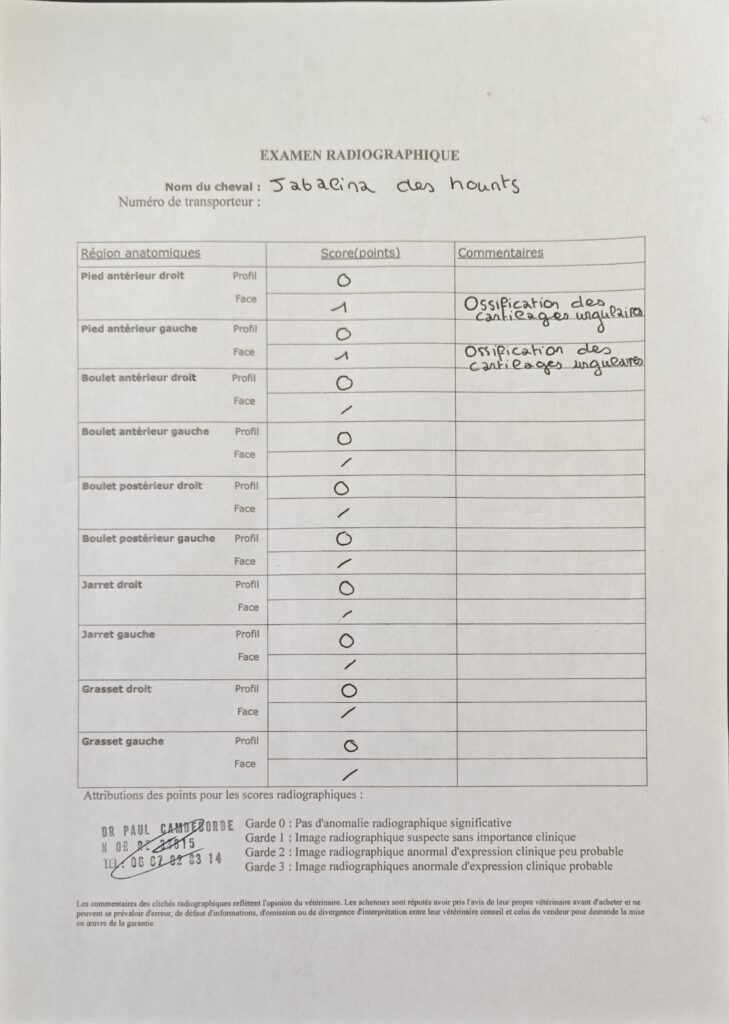 EXAMEN RADIOGRAPHIQUE
Nom du cheval : Jabalina des hounts
Numéro de transporteur :
Région anatomiques Score(points) Commentaires
Pied antérieur droit Profil 0
Face 1 Ossification des
cartilages ungulaires
Pied antérieur gauche Profil 0
Face 1 Ossification des
cartilages ungulaires
Boulet antérieur droit Profil 0
Face /
Boulet antérieur gauche Profil 0
Face /
Boulet postérieur droit Profil 0
Face /
Boulet postérieur gauche Profil 0
Face /
Jarret droit Profil 0
Face /
Jarret gauche Profil 0
Face /
Grasset droit Profil 0
Face /
Grasset gauche Profil 0
Face /
Attributions des points pour les scores radiographiques :
DR PAUL CAMDEBORDE
N OR DE 23815
TEL: 06 07 82 63 14
Garde 0 : Pas d'anomalie radiographique significative
Garde 1 : Image radiographique suspecte sans importance clinique
Garde 2 : Image radiographique anormal d'expression clinique peu probable
Garde 3 : Image radiographiques anormale d'expression clinique probable
Les commentaires des clichés radiographiques reflètent l'opinion du vétérinaire. Les acheteurs sont réputés avoir pris l'avis de leur propre vétérinaire avant d'acheter et ne
peuvent se prévaloir d'erreur, de défaut d'informations, d'omission ou de divergence d'interprétation entre leur vétérinaire conseil et celui du vendeur pour demande la mise
en œuvre de la garantie.